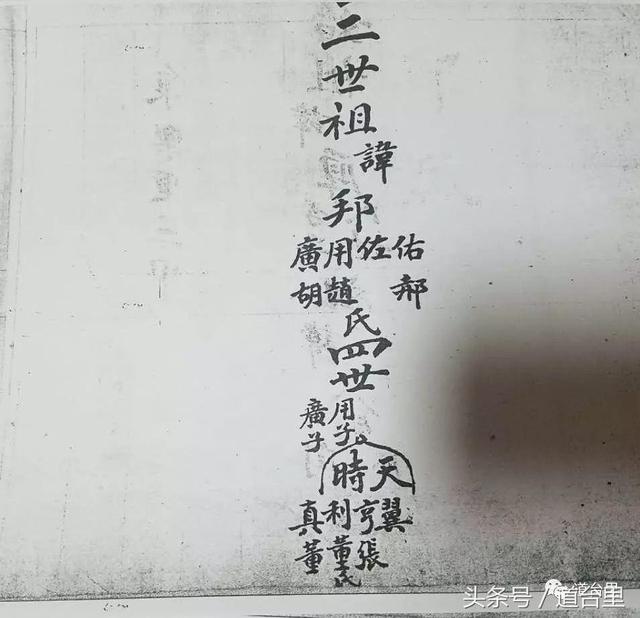 三世祖
諱
邦
佑佐用廣
郝趙胡
氏
四世
用子
廣子
天時
翼亨利真
張董氏董
道台里
头条号 / 道台里